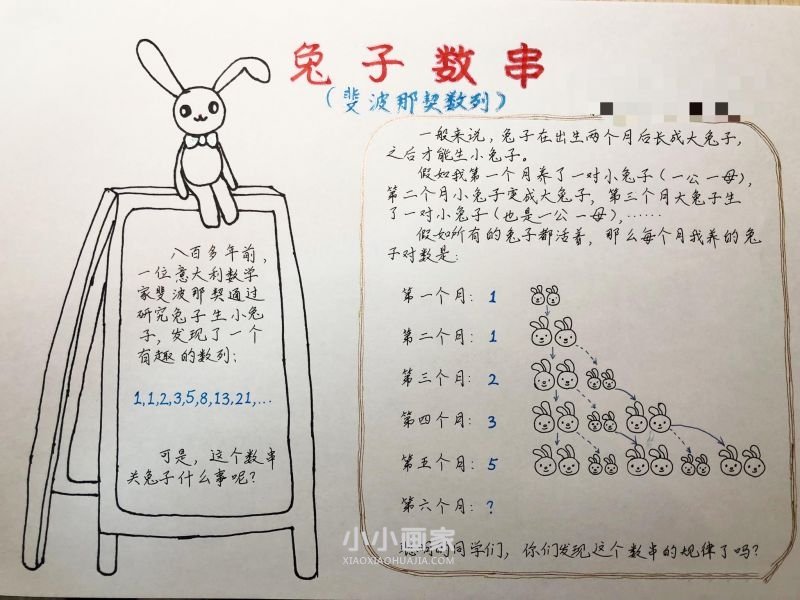 兔子数串
(斐波那契数列)
八百多年前,
一位意大利数学
家斐波那契通过
研究兔子生小兔
子,发现了一个
有趣的数列:
1,1,2,3,5,8,13,21,...
可是,这个数串
关兔子什么事呢?
一般来说,兔子在出生两个月后长成大兔子,
之后才能生小兔子。
假如我第一个月养了一对小兔子(一公一母),
第二个月小兔子变成大兔子,第三个月大兔子生
了一对小兔子(也是一公一母),……
假如所有的兔子都活着,那么每个月我养的兔
子对数是:
第一个月: 1
第二个月: 1
第三个月: 2
第四个月: 3
第五个月: 5
第六个月: ?
聪明的同学们,你们发现这个数串的规律了吗?
小小画家
XIAOXIAOHUAJIA.COM